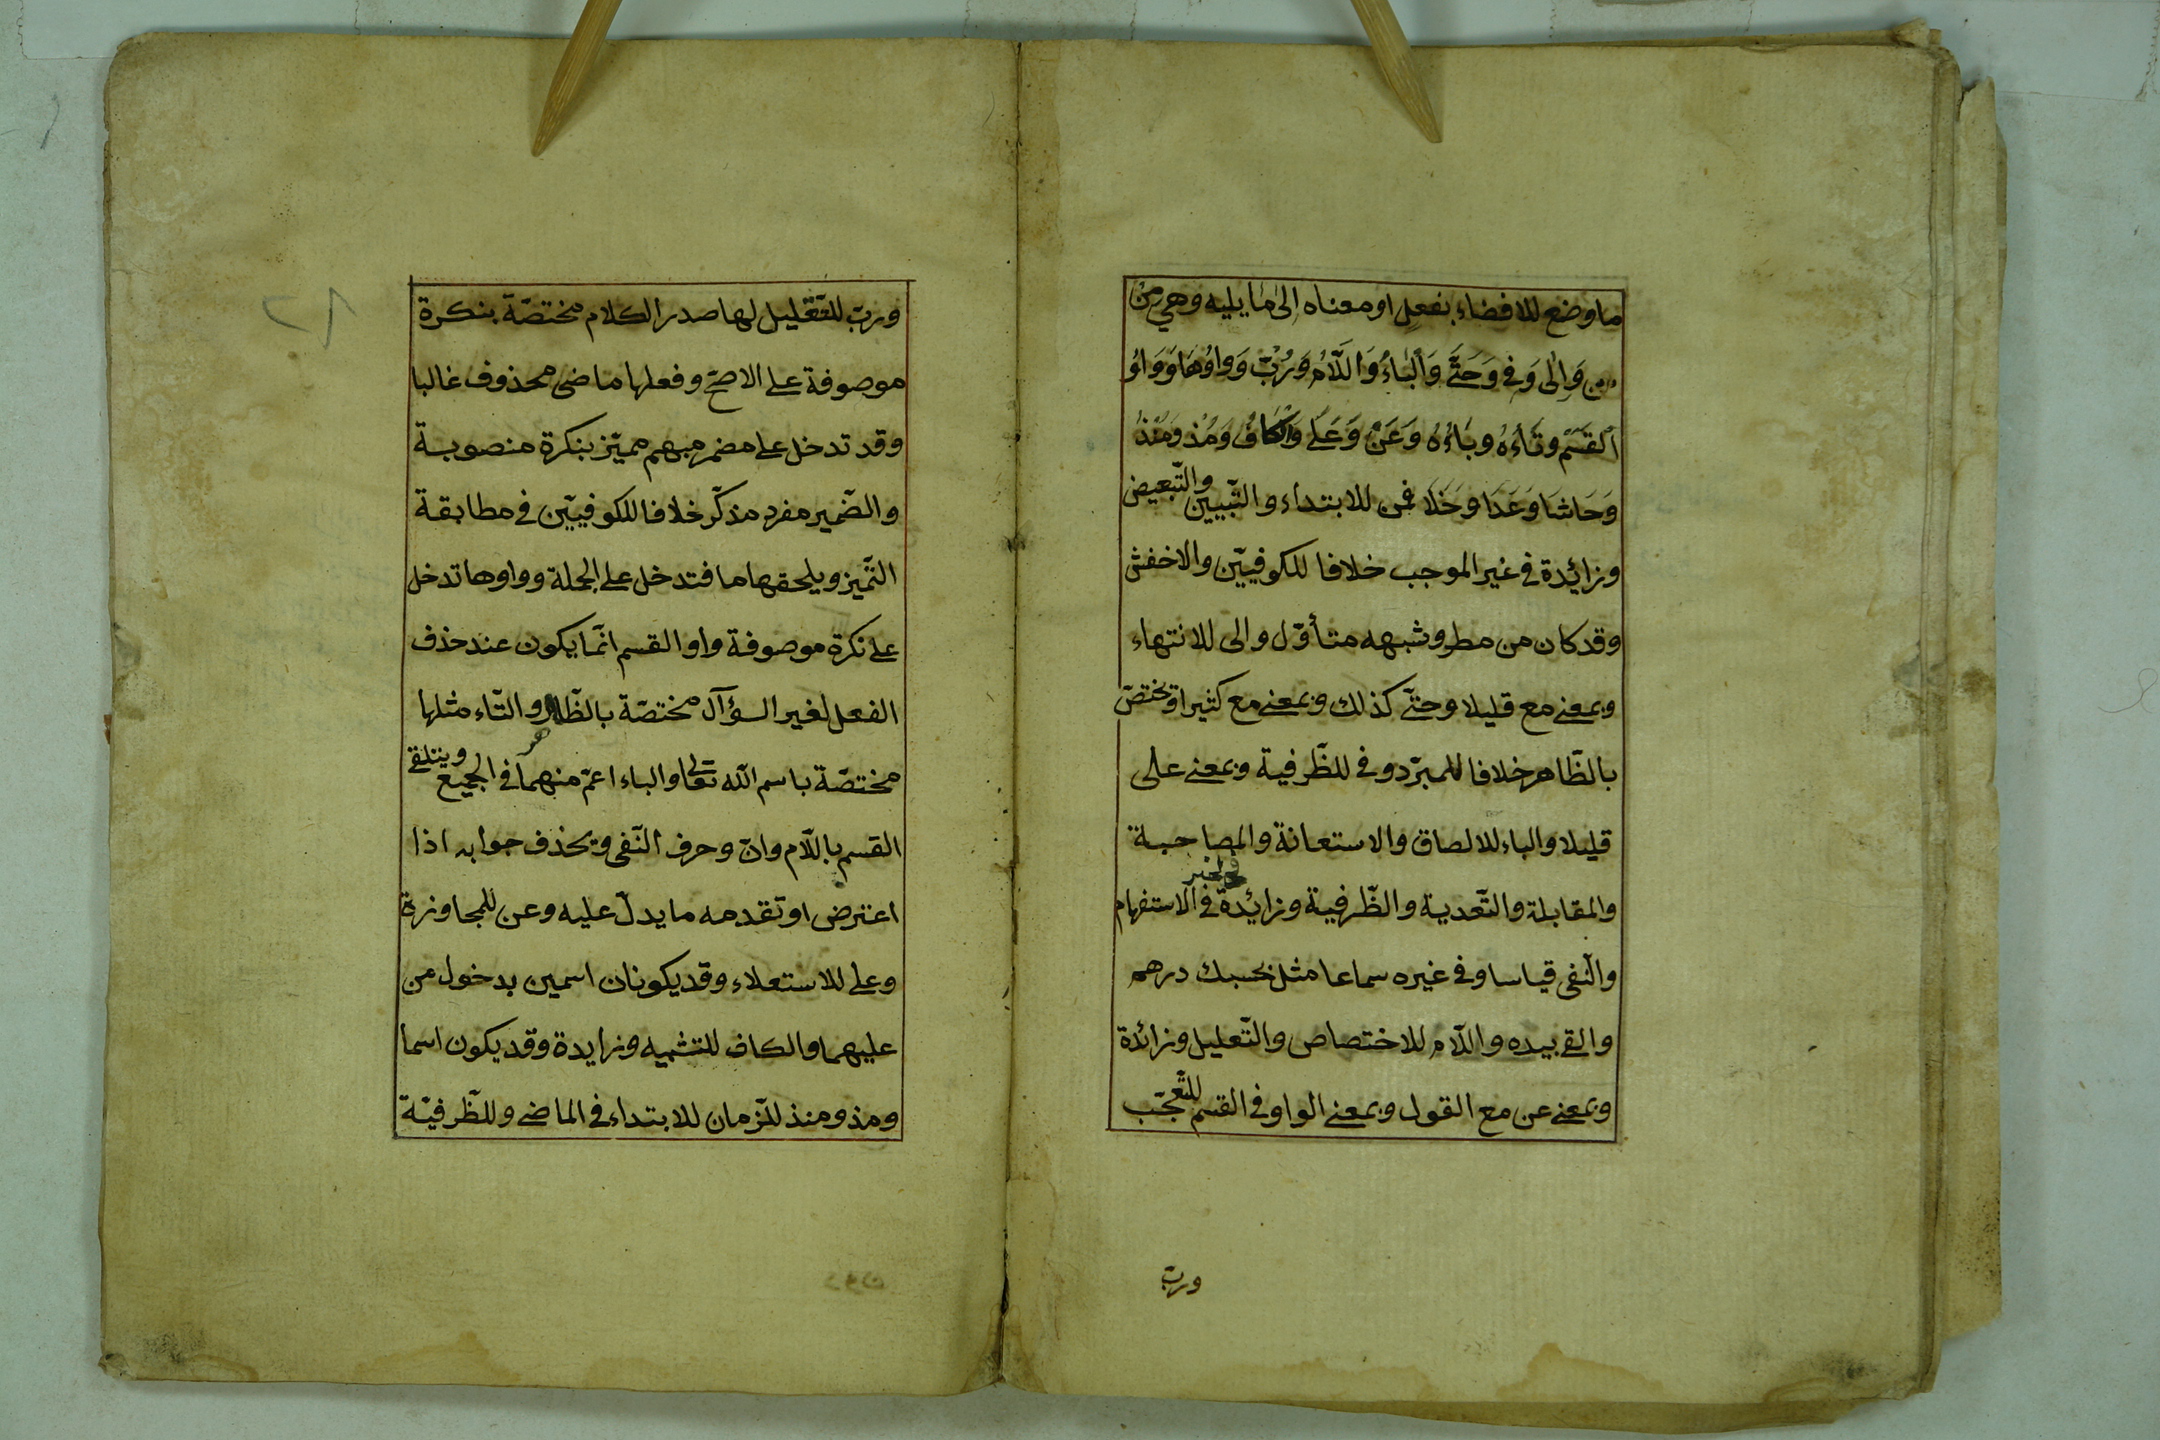 ما وضع للافضاء بفعل او معناه اِلىٰ مٰا يليه وهي مِنْ
من وَاِلٰى وَفِي وَحَتّىَ وَاَلْبٰاءُ وَاَللّٰامُ وَرُبّ وَوٰاوُهٰا وَوٰاوُ
اَلقَسَمِ وتَٰاءُهُ وبَٰاءُهُ وَعَنْ وَعَلىٰ وَاَلْكٰافُ وَمُذ وَمُنْذُ
وَحَاشَا وَعَدَا وخَلَا فمن للابتداء والتّبيين والتّبعيض
وزائدة في غير الموجب خلافا للكوفيّين والاخفش
وقد كان من مطر وشبهه متأوّل والى للانتهاء
وبمعنى مع قليلا وحتّى كذلك وبمعنى مع كثيرا وتختصّ
بالظّاهر خلافا للمبرّد وفي للظّرفية وبمعنى على
قليلا والباء للالصاق والاستعانة والمصاحبة
والمقابلة والتّعدية والظّرفية وزائدة في الخبر في الاستفهام
والنّفى قياسا وفي غيره سماعا مثل بحسبك درهم
والقى بيده واللّام للاختصاص والتّعليل وزائدة
وبمعنى عن مع القول وبمعنى الواو في القسم للتّعجّب
وربّ
وربّ للتّقليل لها صدر الكلام مختصّة بنكرة
موصوفة على الاصحّ وفعلها ماضى محذوف غالبا
وقد تدخل على مضمر مبهم مميّز بنكرة منصوبة
والضّمير مفرد مذكّر خلافا للكوفيّين في مطابقة
التّميز ويلحقها ما فتدخل على الجملة وواوها تدخل
على نكرة موصوفة واو القسم انّما يكون عند حذف
الفعل لغير السؤآل مختصّة بالظّاهر والتّاء مثلها
مختصّة باسم اللّه تعالى والباء اعمّ منهما في الجميع ويتلقى
القسم باللّام وانّ وحرف النّفى ويحذف جوابه اذا
اعترض او تقدمه ما يدلّ عليه وعن للمجاوزة
وعلى للاستعلاء وقد يكونان اسمين بدخول من
عليهما والكاف للتشبيه وزايدة وقد يكون اسما
ومذ ومنذ للزّمان للابتداء في الماضى وللظّرفيّة